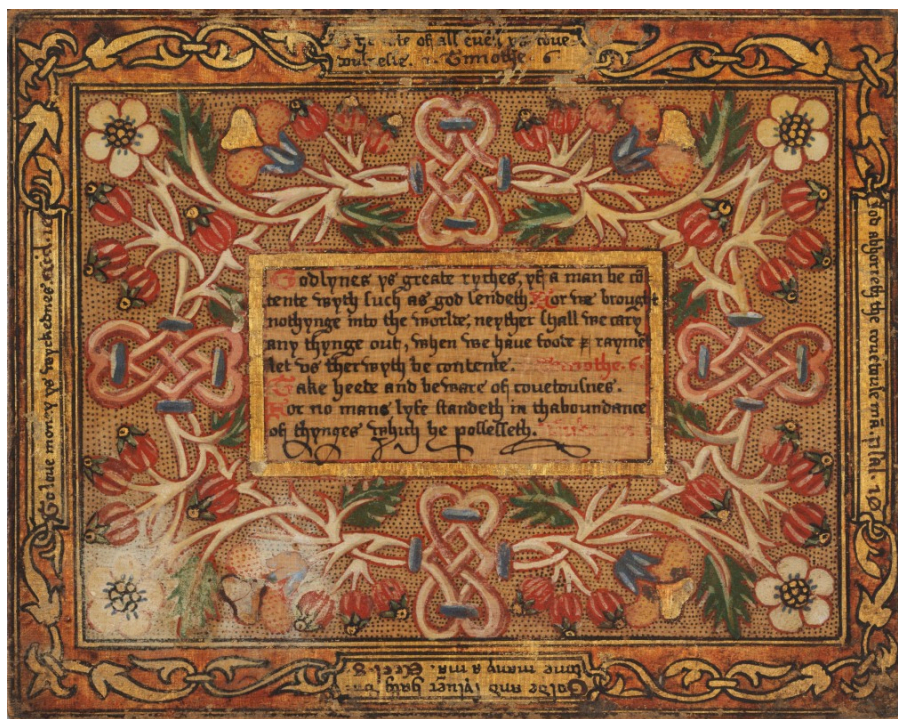 of all euel, ys coue-
tousenes. Timothe. 6
Godlynes ys greate ryches, yf a man be cō
tente wyth such as god sendeth. For we brought
nothynge into the worlde, neyther shall we cary
any thynge out, when we haue foode & rayme
let vs therwyth be contente. Timothe. 6.
Take heede and beware of couetousnes.
For no mans lyfe standeth in thaboundance
of thynges which he possesseth.
God abhorreth the couetouse mā. psal. 10
Golde and syluer hath vn=
done many a mā. Eccl. 8
To loue money ys wyckednes eccl. 10